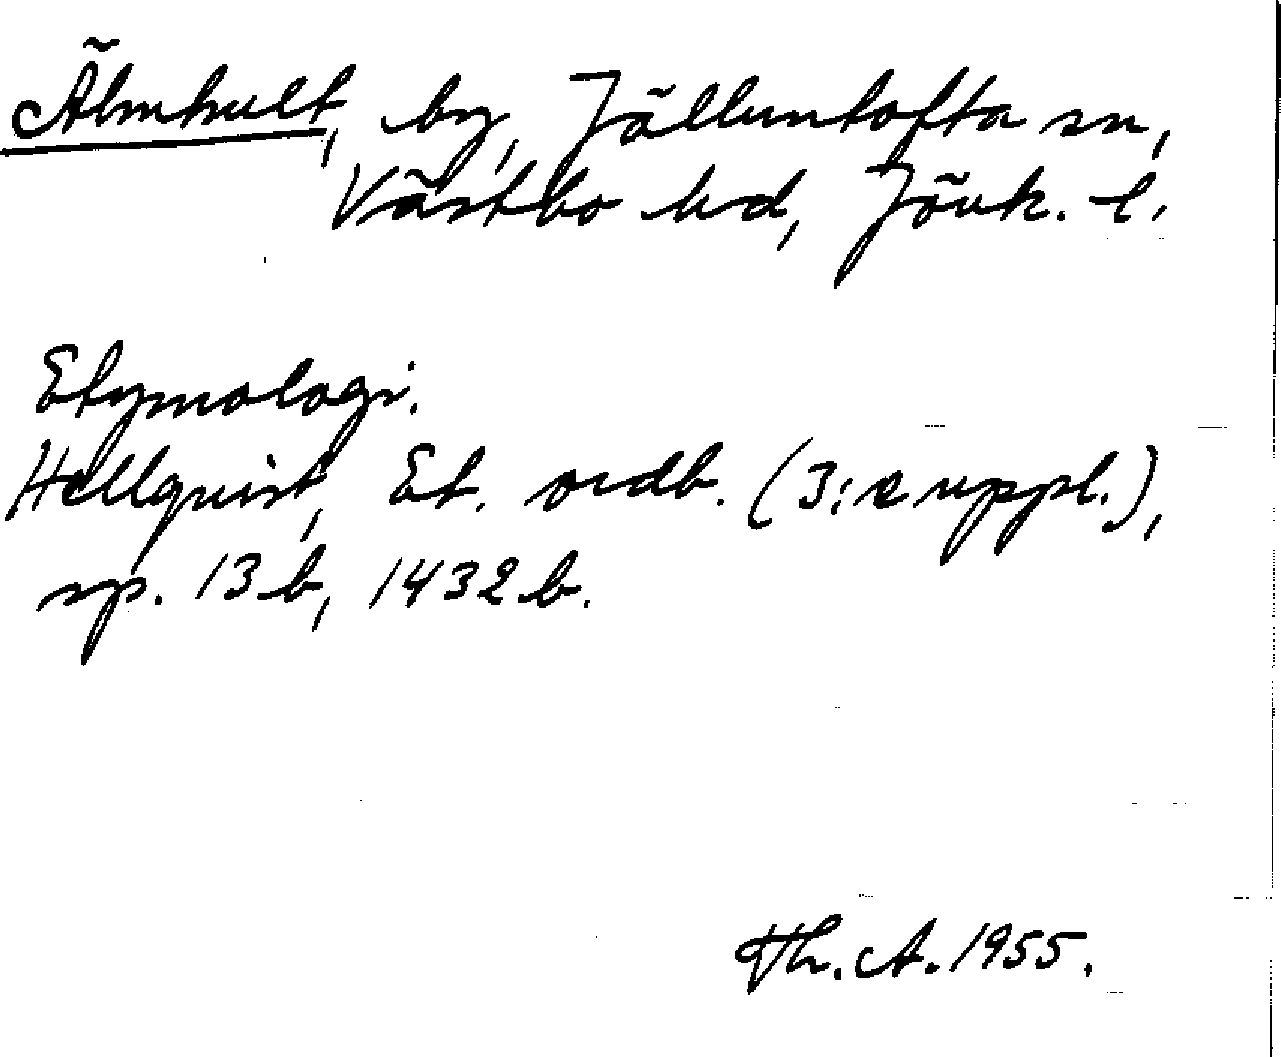 Älmhult, by, Jälluntofta sn,
Västbo hd, Jönk. l.
Etymologi.
Hellquist, Et. ordb. (3:e uppl.),
sp. 13 b, 1432 b.
Th. A. 1955.